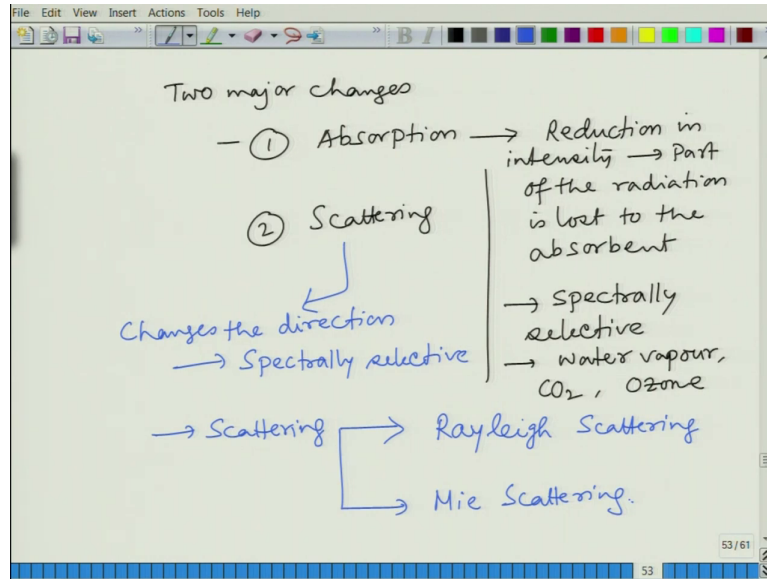 File Edit View Insert Actions Tools Help
Two major changes
- ① Absorption → Reduction in
intensity → Part
of the radiation
is lost to the
absorbent
→ Spectrally
selective
→ Water vapour,
CO2, Ozone
② Scattering
Changes the direction
→ Spectrally selective
→ Scattering → Rayleigh Scattering
→ Mie Scattering.
53/61
53